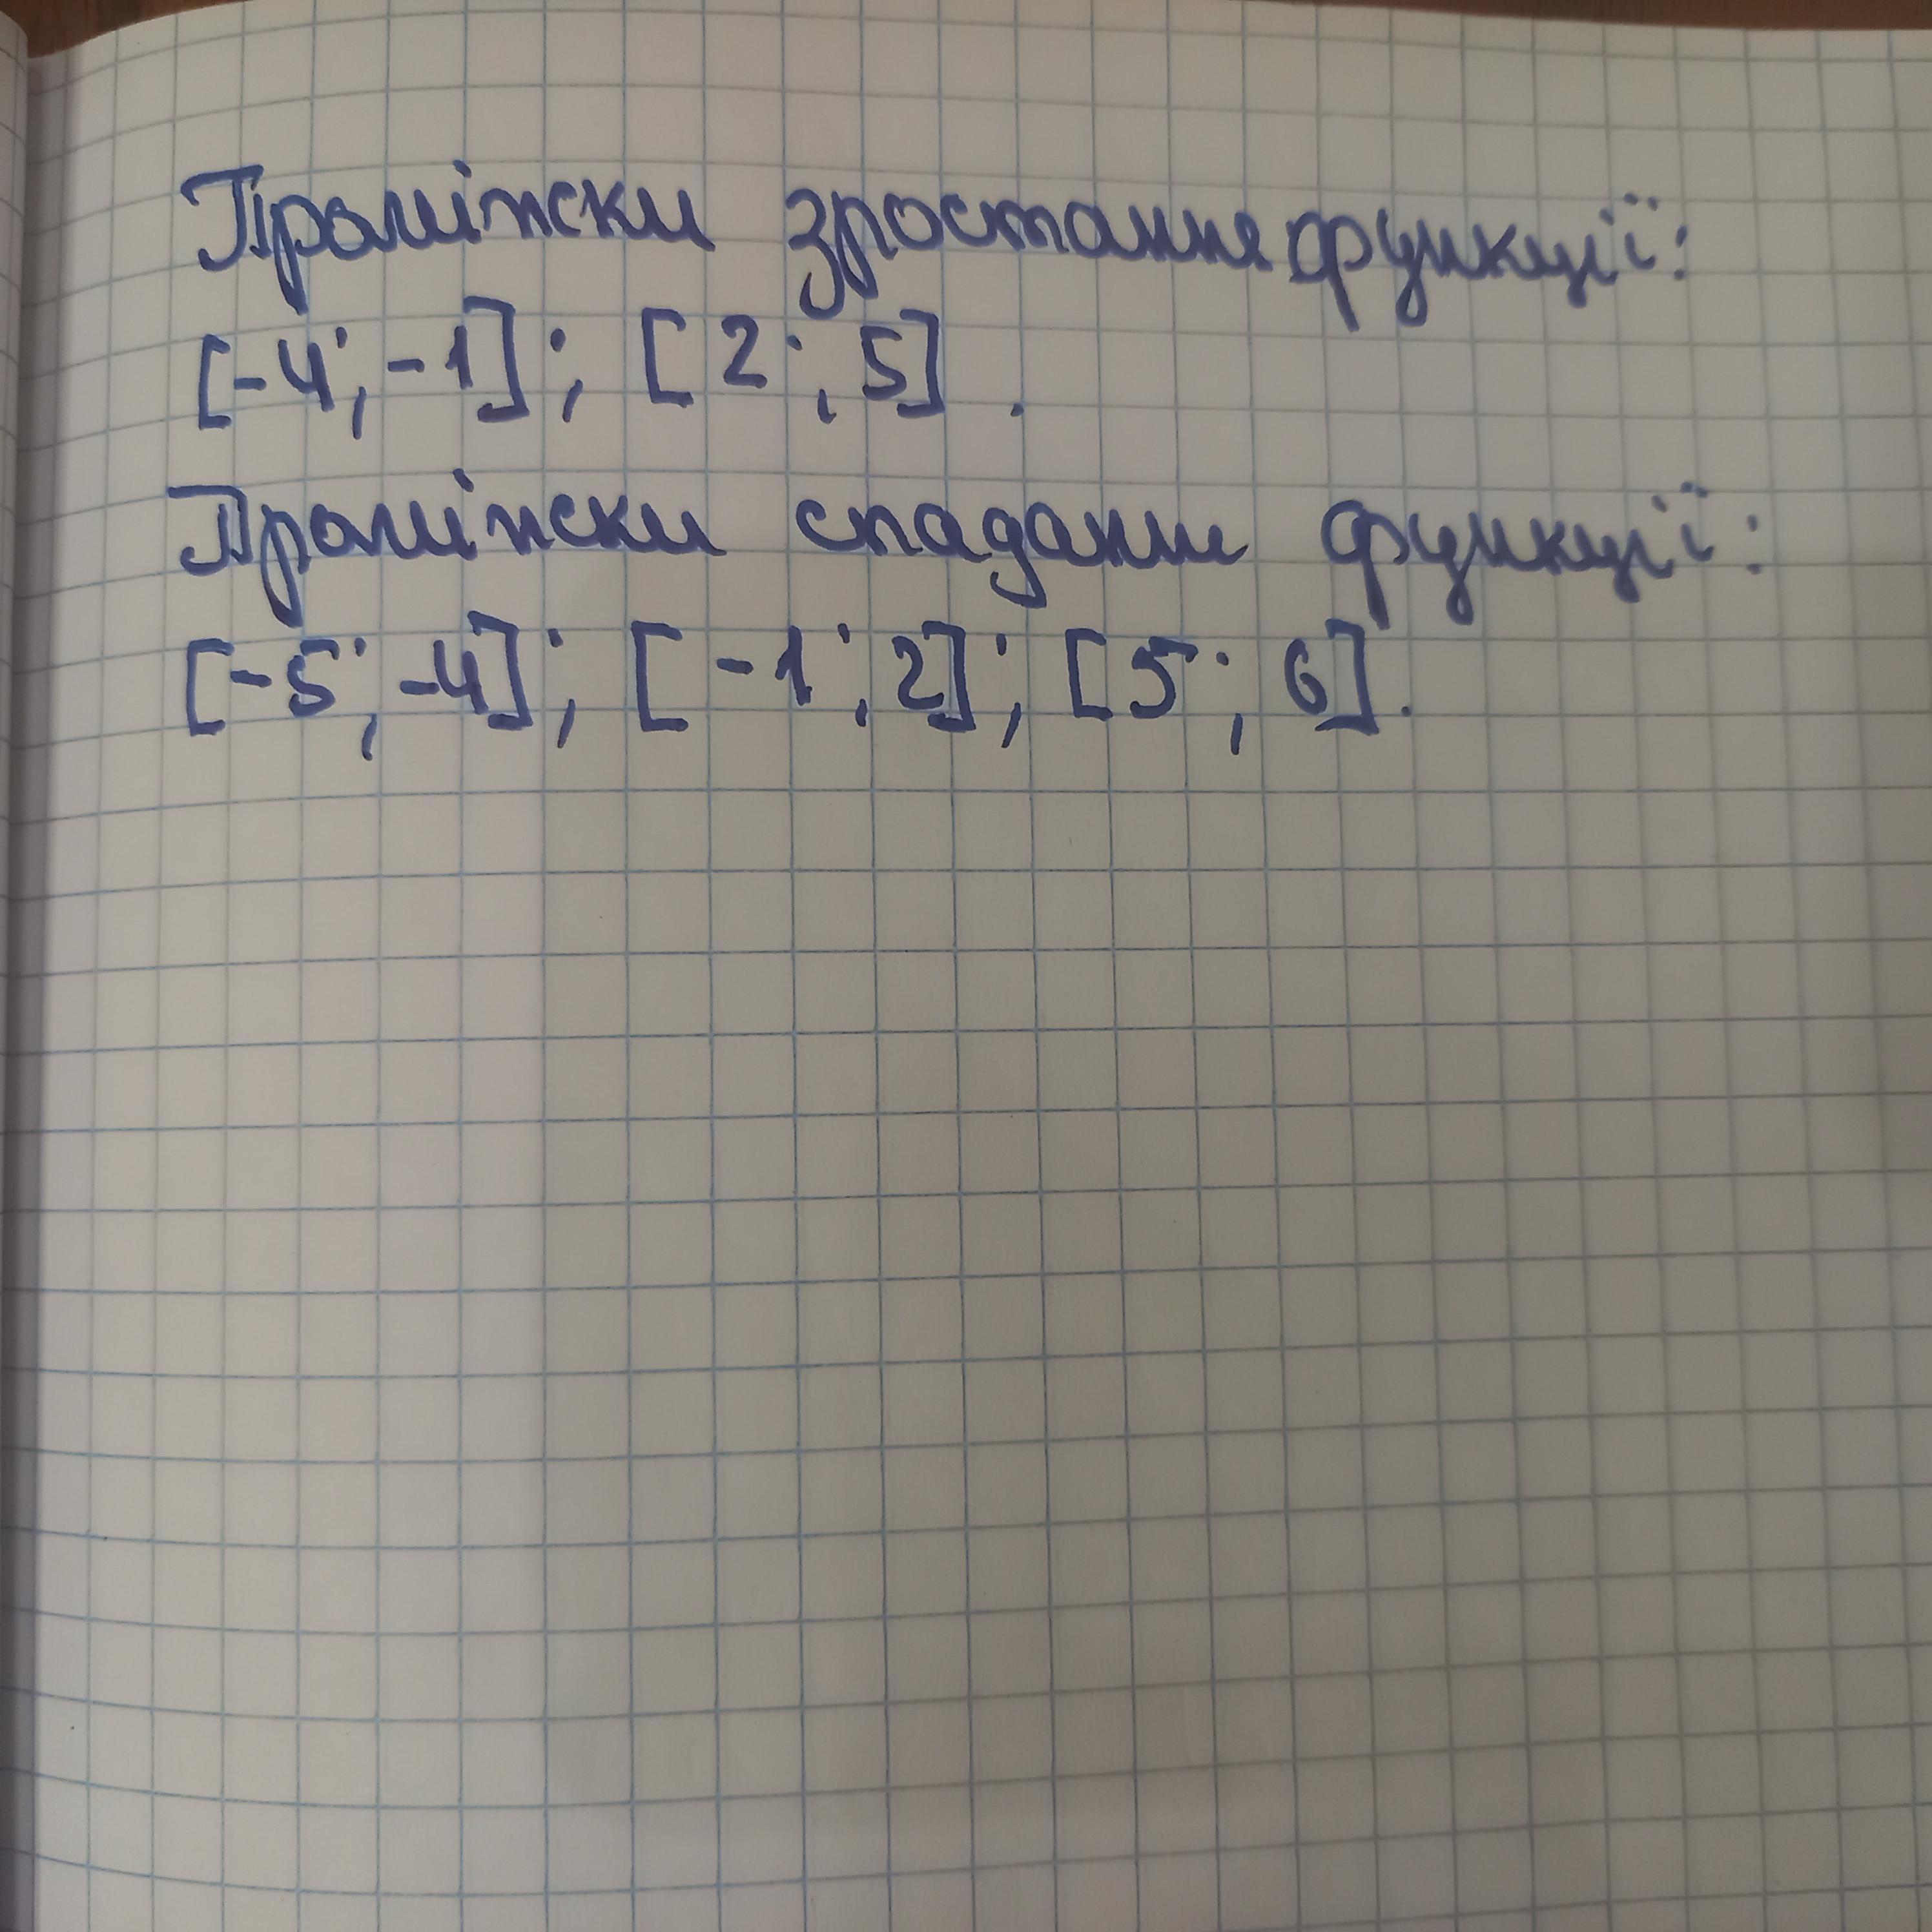 Проміжки зростання функції:
[-4; -1]; [2; 5].
Проміжки спадання функції:
[-5; -4]; [-1; 2]; [5; 6].